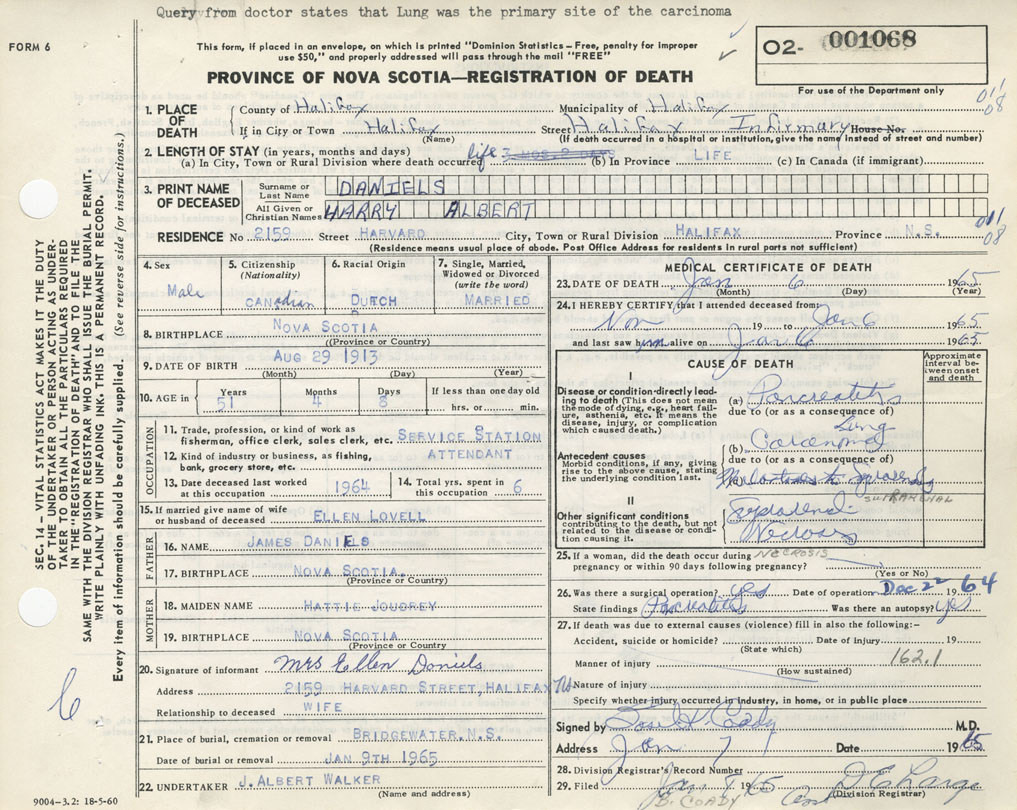 Query from doctor states that Lung was the primary site of the carcinoma
FORM 6
This form, if placed in an envelope, on which is printed "Dominion Statistics – Free, penalty for improper
use $50," and properly addressed will pass through the mail "FREE"
O2- 001068
For use of the Department only
PROVINCE OF NOVA SCOTIA—REGISTRATION OF DEATH
SEC. 14 – VITAL STATISTICS ACT MAKES IT THE DUTY
OF THE UNDERTAKER OR PERSON ACTING AS UNDER-
TAKER TO OBTAIN ALL THE PARTICULARS REQUIRED
IN THE "REGISTRATION OF DEATH" AND TO FILE THE
SAME WITH THE DIVISION REGISTRAR WHO SHALL ISSUE THE BURIAL PERMIT.
WRITE PLAINLY WITH UNFADING INK. THIS IS A PERMANENT RECORD.
Every item of information should be carefully supplied. (See reverse side for instructions.)
1. PLACE OF DEATH
County of Halifax Municipality of Halifax
If in City or Town Halifax Street Halifax Infirmary House No.
(Name) (If death occurred in a hospital or institution, give the name instead of street and number)
011
08
2. LENGTH OF STAY (in years, months and days)
(a) In City, Town or Rural Division where death occurred life 3 MOS. 2 DAY (b) In Province LIFE (c) In Canada (if immigrant)
3. PRINT NAME OF DECEASED
Surname or Last Name DANIELS
All Given or Christian Names HARRY ALBERT
RESIDENCE No 2159 Street HARVARD City, Town or Rural Division HALIFAX Province N.S.
011
08
(Residence means usual place of abode. Post Office Address for residents in rural parts not sufficient)
4. Sex Male
5. Citizenship (Nationality) CANadian
6. Racial Origin DUTCH
7. Single, Married, Widowed or Divorced (write the word) MARRIED
8. BIRTHPLACE NOVA SCOTIA
(Province or Country)
9. DATE OF BIRTH AUG 29 1913
(Month) (Day) (Year)
10. AGE in Years 51 Months 4 Days 8 If less than one day old hrs. or min.
OCCUPATION
11. Trade, profession, or kind of work as fisherman, office clerk, sales clerk, etc. SERVICE STATION
12. Kind of industry or business, as fishing, bank, grocery store, etc. ATTENDANT
13. Date deceased last worked at this occupation 1964
14. Total yrs. spent in this occupation 6
15. If married give name of wife or husband of deceased ELLEN LOVELL
FATHER
16. NAME JAMES DANIELS
17. BIRTHPLACE NOVA SCOTIA.
(Province or Country)
MOTHER
18. MAIDEN NAME HATTIE JOUDREY
19. BIRTHPLACE NOVA SCOTIA
(Province or Country)
20. Signature of informant Mrs Ellen Daniels
Address 2159 HARVARD STREET, HALIFAX NS
Relationship to deceased WIFE
21. Place of burial, cremation or removal BRIDGEWATER, N.S.
Date of burial or removal JAN 9TH 1965
22. UNDERTAKER J. ALBERT WALKER
(Name and address)
6
9004-3.2: 18-5-60
MEDICAL CERTIFICATE OF DEATH
23. DATE OF DEATH Jan 6 1965
(Month) (Day) (Year)
24. I HEREBY CERTIFY that I attended deceased from:
Nov 19 to Jan 6 1965
and last saw him alive on Jan 6 1965
CAUSE OF DEATH
Approximate interval between onset and death
I
Disease or condition directly leading to death (This does not mean the mode of dying, e.g., heart failure, asthenia, etc. It means the disease, injury, or complication which caused death.)
(a) Pancreatitis
due to (or as a consequence of)
Lung
(b) Carcinoma
due to (or as a consequence of)
Antecedent causes
Morbid conditions, if any, giving rise to the above cause, stating the underlying condition last.
SUPRARENAL
II
Other significant conditions
contributing to the death, but not related to the disease or condition causing it.
Suprarenal
Necrosis
NECROSIS
25. If a woman, did the death occur during pregnancy or within 90 days following pregnancy?
(Yes or No)
26. Was there a surgical operation? yes Date of operation Dec 22 1964
State findings Pancreatitis Was there an autopsy? yes
27. If death was due to external causes (violence) fill in also the following:–
Accident, suicide or homicide? Date of Injury 19
(State which)
162.1
Manner of injury
(How sustained)
Nature of injury
Specify whether injury occurred in industry, in home, or in public place
Signed by M.D.
Address Jan 7 Date 1965
28. Division Registrar's Record Number
29. Filed Jan 8 1965
(Division Registrar)
B. COADY